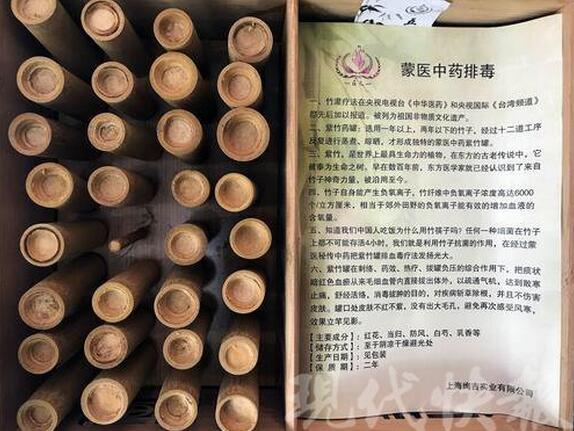 蒙医中药排毒
一、竹罐疗法在央视电视台《中华医药》和央视国际《台湾频道》
都先后加以报道，被列为祖国非物质文化遗产。
二、紫竹药罐：选用一年以上，两年以下的竹子，经过十二道工序
反复进行蒸煮、晾晒，才形成独特的蒙医中药紫竹罐。
三、紫竹，是世界上最具生命力的植物，在东方的古老传说中，它
被奉为生命之树，早在数百年前，东方医学家就已经认识到了来自
竹子神奇力量，被沿用至今。
四、竹子自身能产生负氧离子，竹纤维中负氧离子浓度高达6000
个/立方厘米，相当于郊外田野的负氧离子能有效的增加血液的
含氧量。
五、知道我们中国人吃饭为什么用竹筷子吗？任何一种细菌在竹子
上都不可能存活4小时，我们就是利用竹子抗菌的作用，在经过蒙
医秘传中药把紫竹罐排血毒疗法发扬光大。
六、紫竹罐在刺络、药效、热疗、拔罐负压的综合作用下，把痰状
暗红色血瘀从来毛细血管内直接拔出体外，以疏通气机，达到散寒
止痛，舒经活络，消毒祛肿的目的，对疾病斩草除根，并且不伤害
皮肤。罐口处皮肤不红不紫，没有出大毛孔，避免再次感受风寒，
效果立竿见影。
【主要成分】：红花、当归、防风、白芍、乳香等
【储存方式】：至于阴凉干燥避光处
【生产日期】：见包装
【保 质 期】：二年
上海绚吉实业有限公司
现代快报